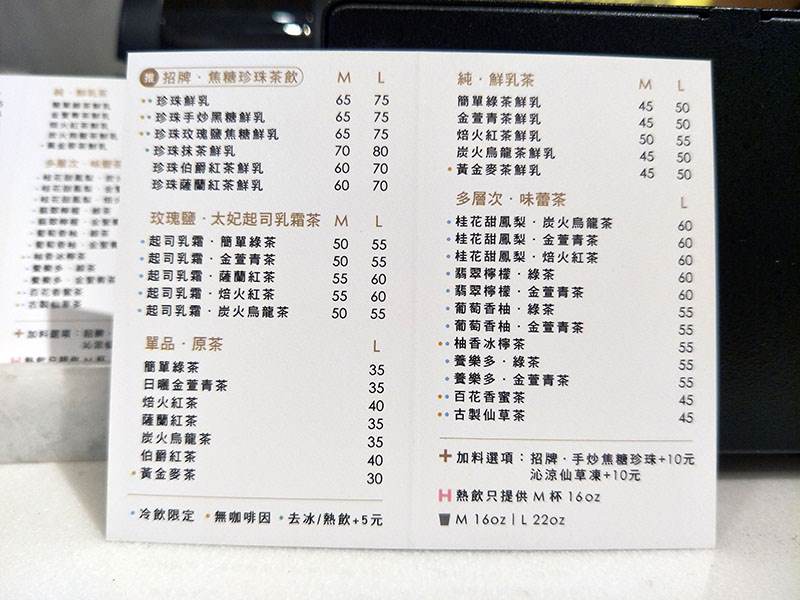 推 招牌·焦糖珍珠茶飲 M L
珍珠鮮乳 65 75
珍珠手炒黑糖鮮乳 65 75
珍珠玫瑰鹽焦糖鮮乳 65 75
珍珠抹茶鮮乳 70 80
珍珠伯爵紅茶鮮乳 60 70
珍珠薩蘭紅茶鮮乳 60 70
玫瑰鹽·太妃起司乳霜茶 M L
起司乳霜·簡單綠茶 50 55
起司乳霜·金萱青茶 50 55
起司乳霜·薩蘭紅茶 55 60
起司乳霜·焙火紅茶 55 60
起司乳霜·炭火烏龍茶 50 55
單品·原茶 L
簡單綠茶 35
日曬金萱青茶 35
焙火紅茶 40
薩蘭紅茶 35
炭火烏龍茶 35
伯爵紅茶 40
黃金麥茶 30
·冷飲限定 ·無咖啡因 ·去冰/熱飲+5元
純·鮮乳茶 M L
簡單綠茶鮮乳 45 50
金萱青茶鮮乳 45 50
焙火紅茶鮮乳 50 55
炭火烏龍茶鮮乳 45 50
黃金麥茶鮮乳 45 50
多層次·味蕾茶 L
桂花甜鳳梨·炭火烏龍茶 60
桂花甜鳳梨·金萱青茶 60
桂花甜鳳梨·焙火紅茶 60
翡翠檸檬·綠茶 60
翡翠檸檬·金萱青茶 60
葡萄香柚·綠茶 55
葡萄香柚·金萱青茶 55
柚香冰檸茶 55
養樂多·綠茶 55
養樂多·金萱青茶 55
百花香蜜茶 45
古製仙草茶 45
+加料選項：招牌·手炒焦糖珍珠+10元
沁涼仙草凍+10元
H 熱飲只提供 M 杯 16oz
M 16oz | L 22oz